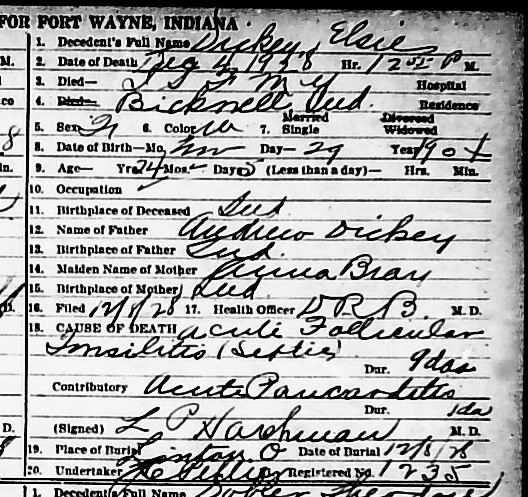 FOR FORT WAYNE, INDIANA
1. Decedent's Full Name Dickey, Elsie
2. Date of Death Dec 4 1928 Hr. 12 P M.
3. Died— Hospital
4. Died— Bicknell Ind. Residence
5. Sex F 6. Color W 7. Married Single Divorced Widowed
8. Date of Birth—Mo. Nov Day— 29 Year 1904
9. Age— Yrs. 24 Mos. — Days 5 (Less than a day)— Hrs. Min.
10. Occupation
11. Birthplace of Deceased Ind
12. Name of Father Andrew Dickey
13. Birthplace of Father Ind.
14. Maiden Name of Mother Anna Bray
15. Birthplace of Mother Ind.
16. Filed 12/ /28 17. Health Officer D R B. M. D.
18. CAUSE OF DEATH Acute Follicular
Tonsilitis (Septic)
Dur. 9 das
Contributory Acute Pancreatitis
Dur. 1 da
(Signed) L P Harshman M. D.
19. Place of Burial Linton, O Date of Burial 12/8/28
20. Undertaker Registered No. 1235
1. Decedent's Full Name